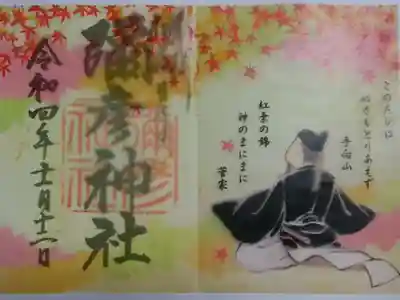 このたびは
ぬさもとりあへず
手向山
紅葉の錦
神のまにまに
菅家
彌彦神社
令和四年十一月十一日